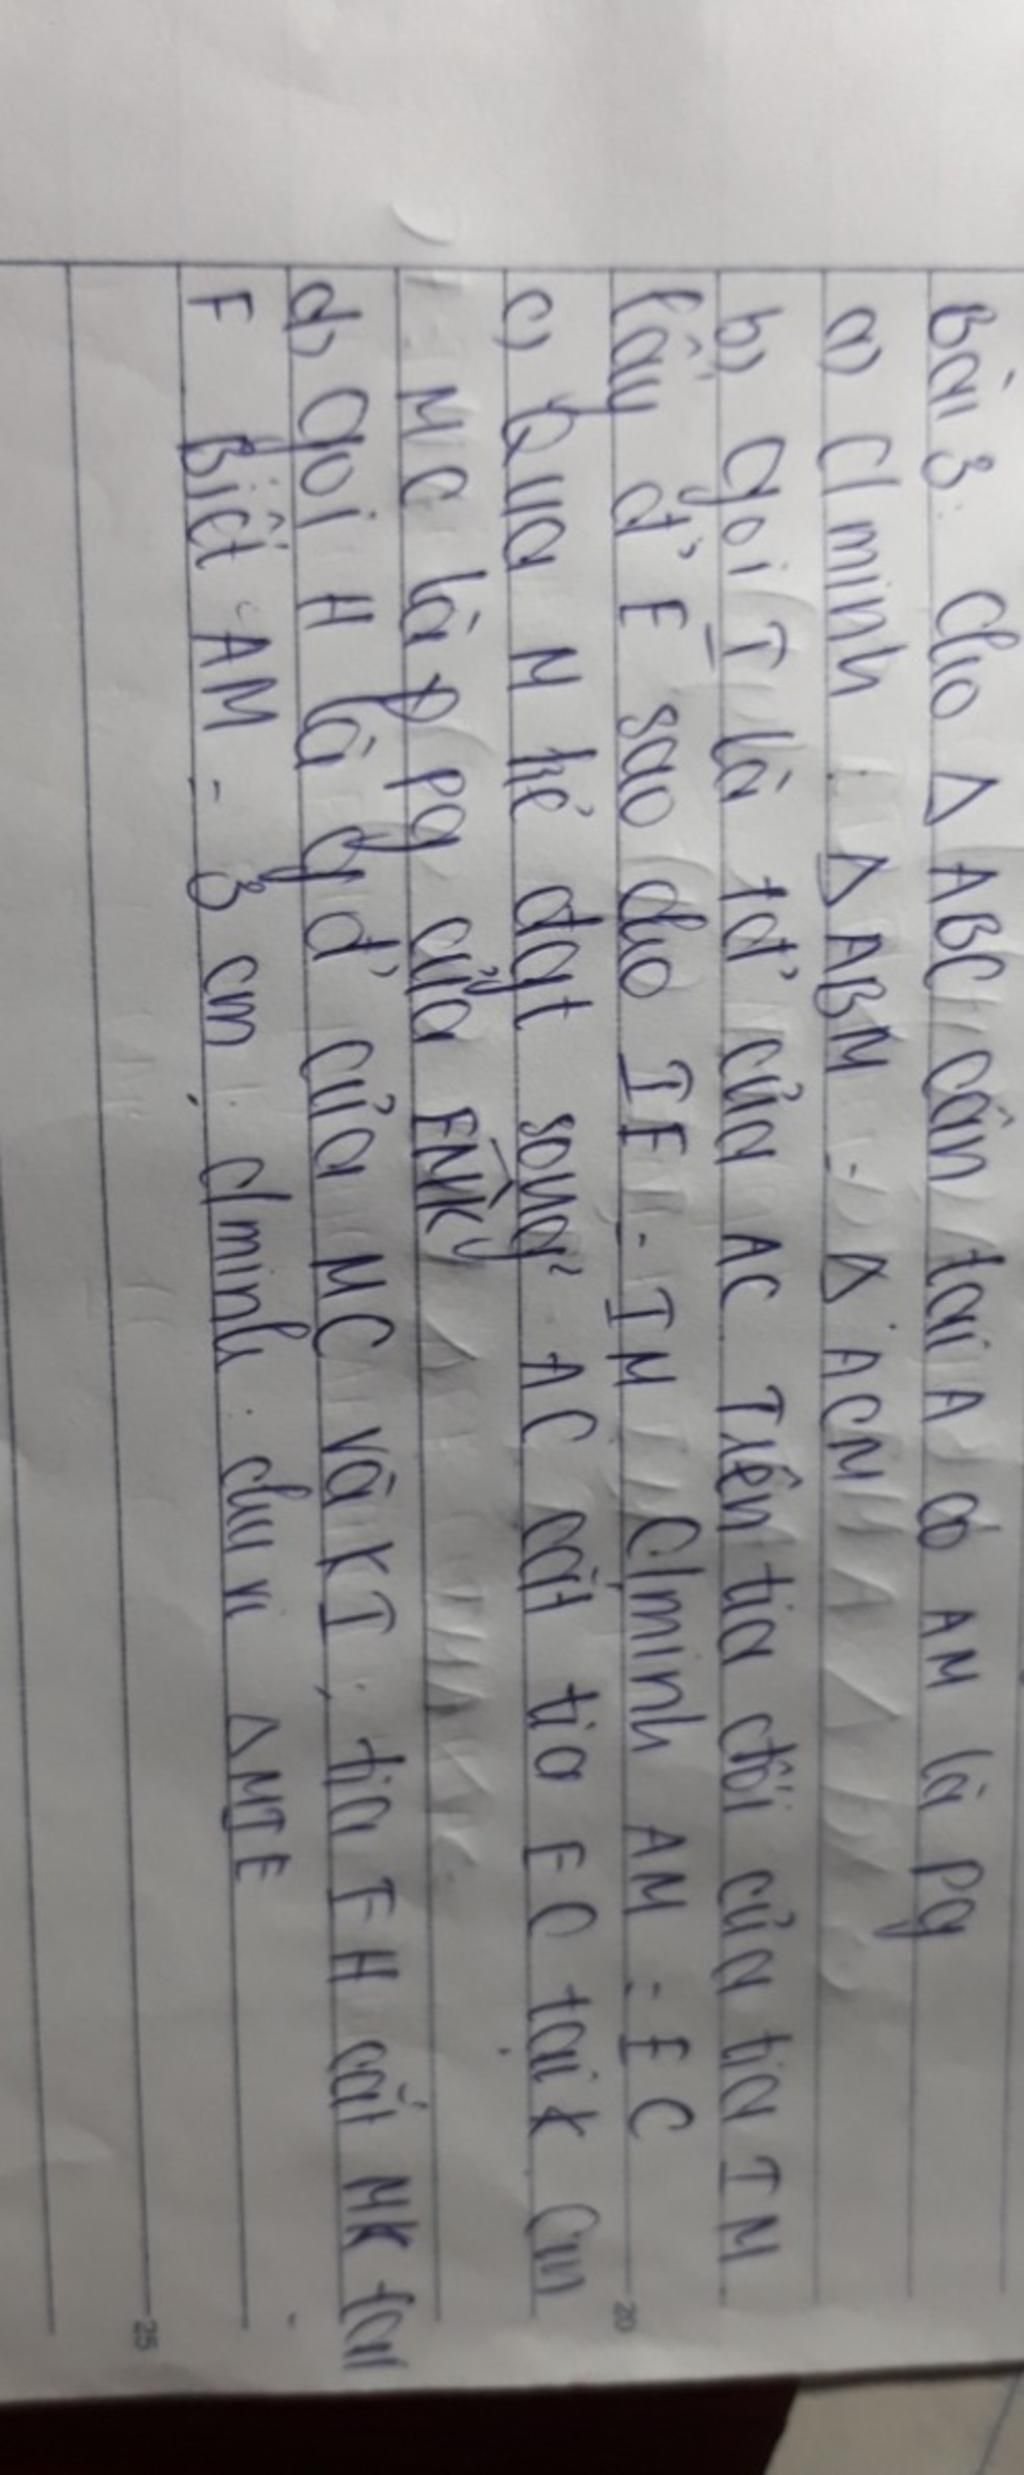 Bài 3. Cho Δ ABC cân tại A có AM là pg
a) C/minh : Δ ABM = Δ ACM
b) Gọi I là tđ' của AC Trên tia đối của tia IM
lấy đ' E sao cho IE = IM C/minh AM = EC
c) Qua M kẻ đgt song² AC cắt tia EC tại K Cm
: MC là pg của EMK
d) Gọi H là gđ' của MC và KI, tia EH cắt MK tại
F Biết AM = 3 cm. C/minh: chu vi Δ MIE
20
25